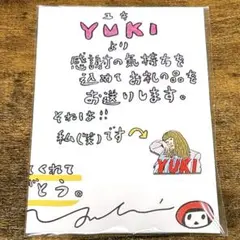 ユキ
YUKI
より
感謝の気持ちを
込めてお礼の品を
お送りします。
それは!!
私(笑)です
YUKI
てくれて
とう。